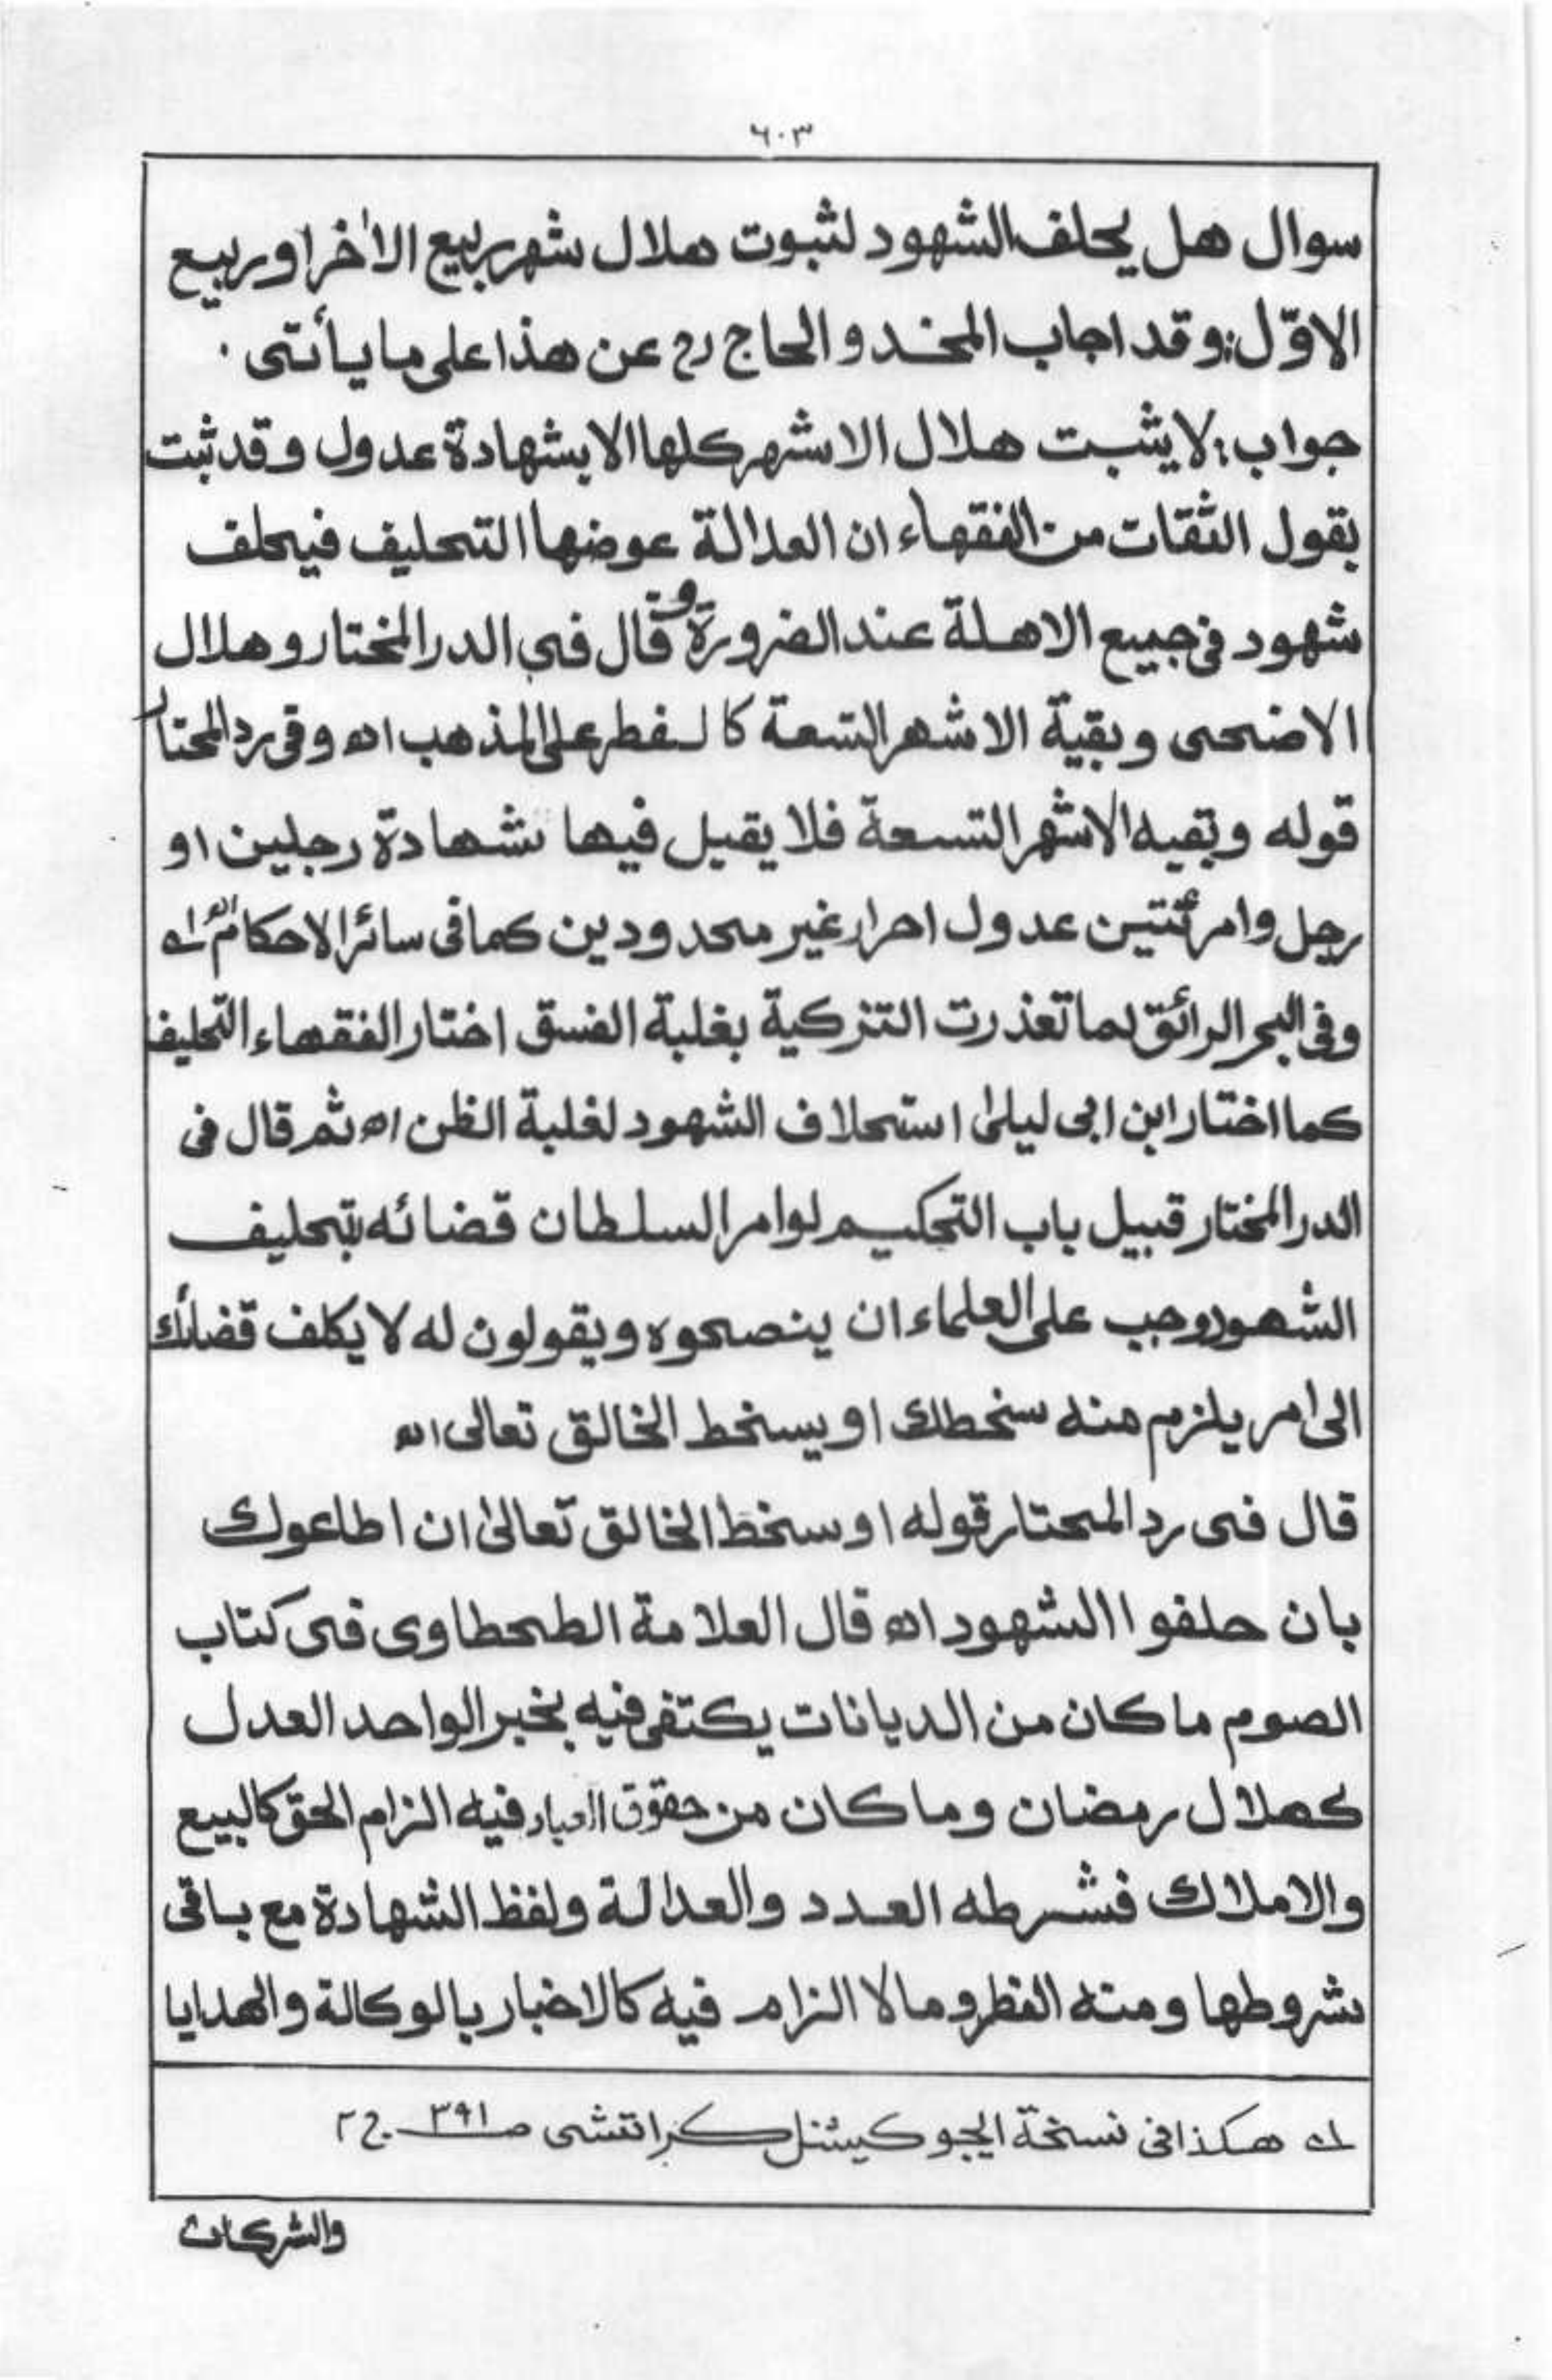 ٦٠٣
سوال هل يحلف الشهود لثبوت هلال شهر ربيع الاٰخر او ربيع
الاوّل: وقد اجاب المخدو الحاج رح عن هذا على ما يأتى ۰
جواب: لا يثبت هلال الاشهر كلها الا بشهادة عدول وقد ثبت
بقول الثقات من الفقهاء ان العدالة عوضها التحليف فيحلف
شهود فى جميع الاهلة عند الضرورة و قال فى الدر المختار وهلال
الاضحى وبقية الاشهر التسعة كالفطر على المذهب اھ وفى رد المحتار
قوله وبقيه الاشهر التسعة فلا يقبل فيها شهادة رجلين او
رجل وامرئتين عدول احرار غير محدودين كما فى سائر الاحكام اھ لـه
وفى البحر الرائق لما تعذرت التزكية بغلبة الفسق اختار الفقهاء التحليف
كما اختار ابن ابى ليلىٰ استحلاف الشهود لغلبة الظن اھ ثم قال فى
الدر المختار قبيل باب التحكيم لوامر السلطان قضائه بتحليف
الشهود وجب على العلماء ان ينصحوه ويقولون له لا يكلف قضائك
الى امر يلزم منه سخطك او يسخط الخالق تعالى اھ
قال فى رد المحتار قوله او سخط الخالق تعالىٰ ان اطاعوك
بان حلفوا الشهود اھ قال العلامة الطحطاوى فى كتاب
الصوم ما كان من الديانات يكتفى فيه بخبر الواحد العدل
كهلال رمضان وما كان من حقوق العباد فيه الزام الحق كالبيع
والاملاك فشرطه العدد والعدالة ولفظ الشهادة مع باقى
شروطها ومنه الفطر وما لا الزام فيه كالاخبار بالوكالة والهدايا
لـه هكذا فى نسخة ايجوكيشنل كراتشى صـ ٣٩١ ج ٢
والشركات